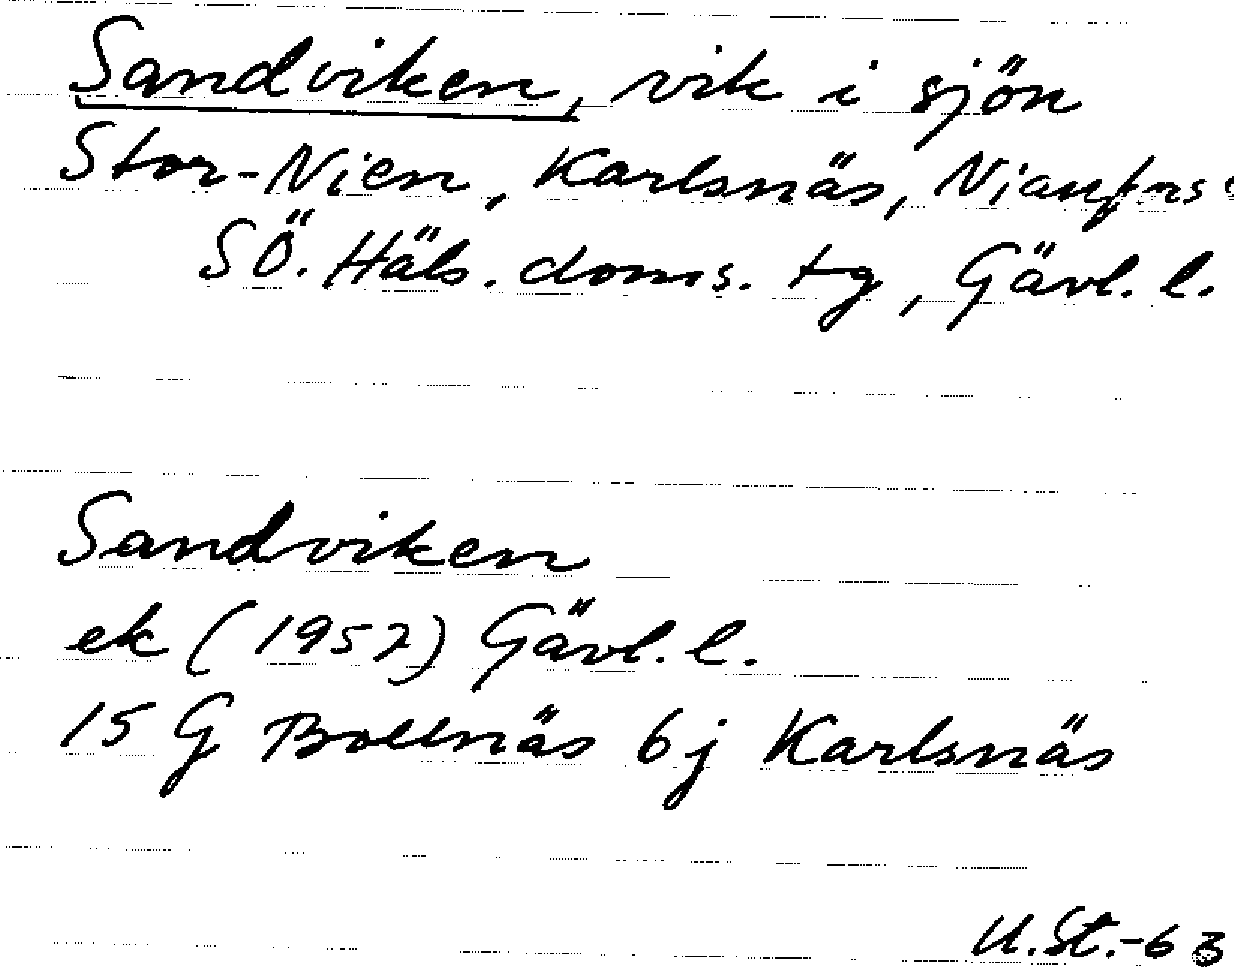 Sandviken, vik i sjön
Stor-Nien, Karlsnäs, Njanfors s
SÖ. Häls. doms. tg, Gävl. l.
Sandviken
ek (1957) Gävl. l.
15 G Bollnäs 6j Karlsnäs
U.St.-63